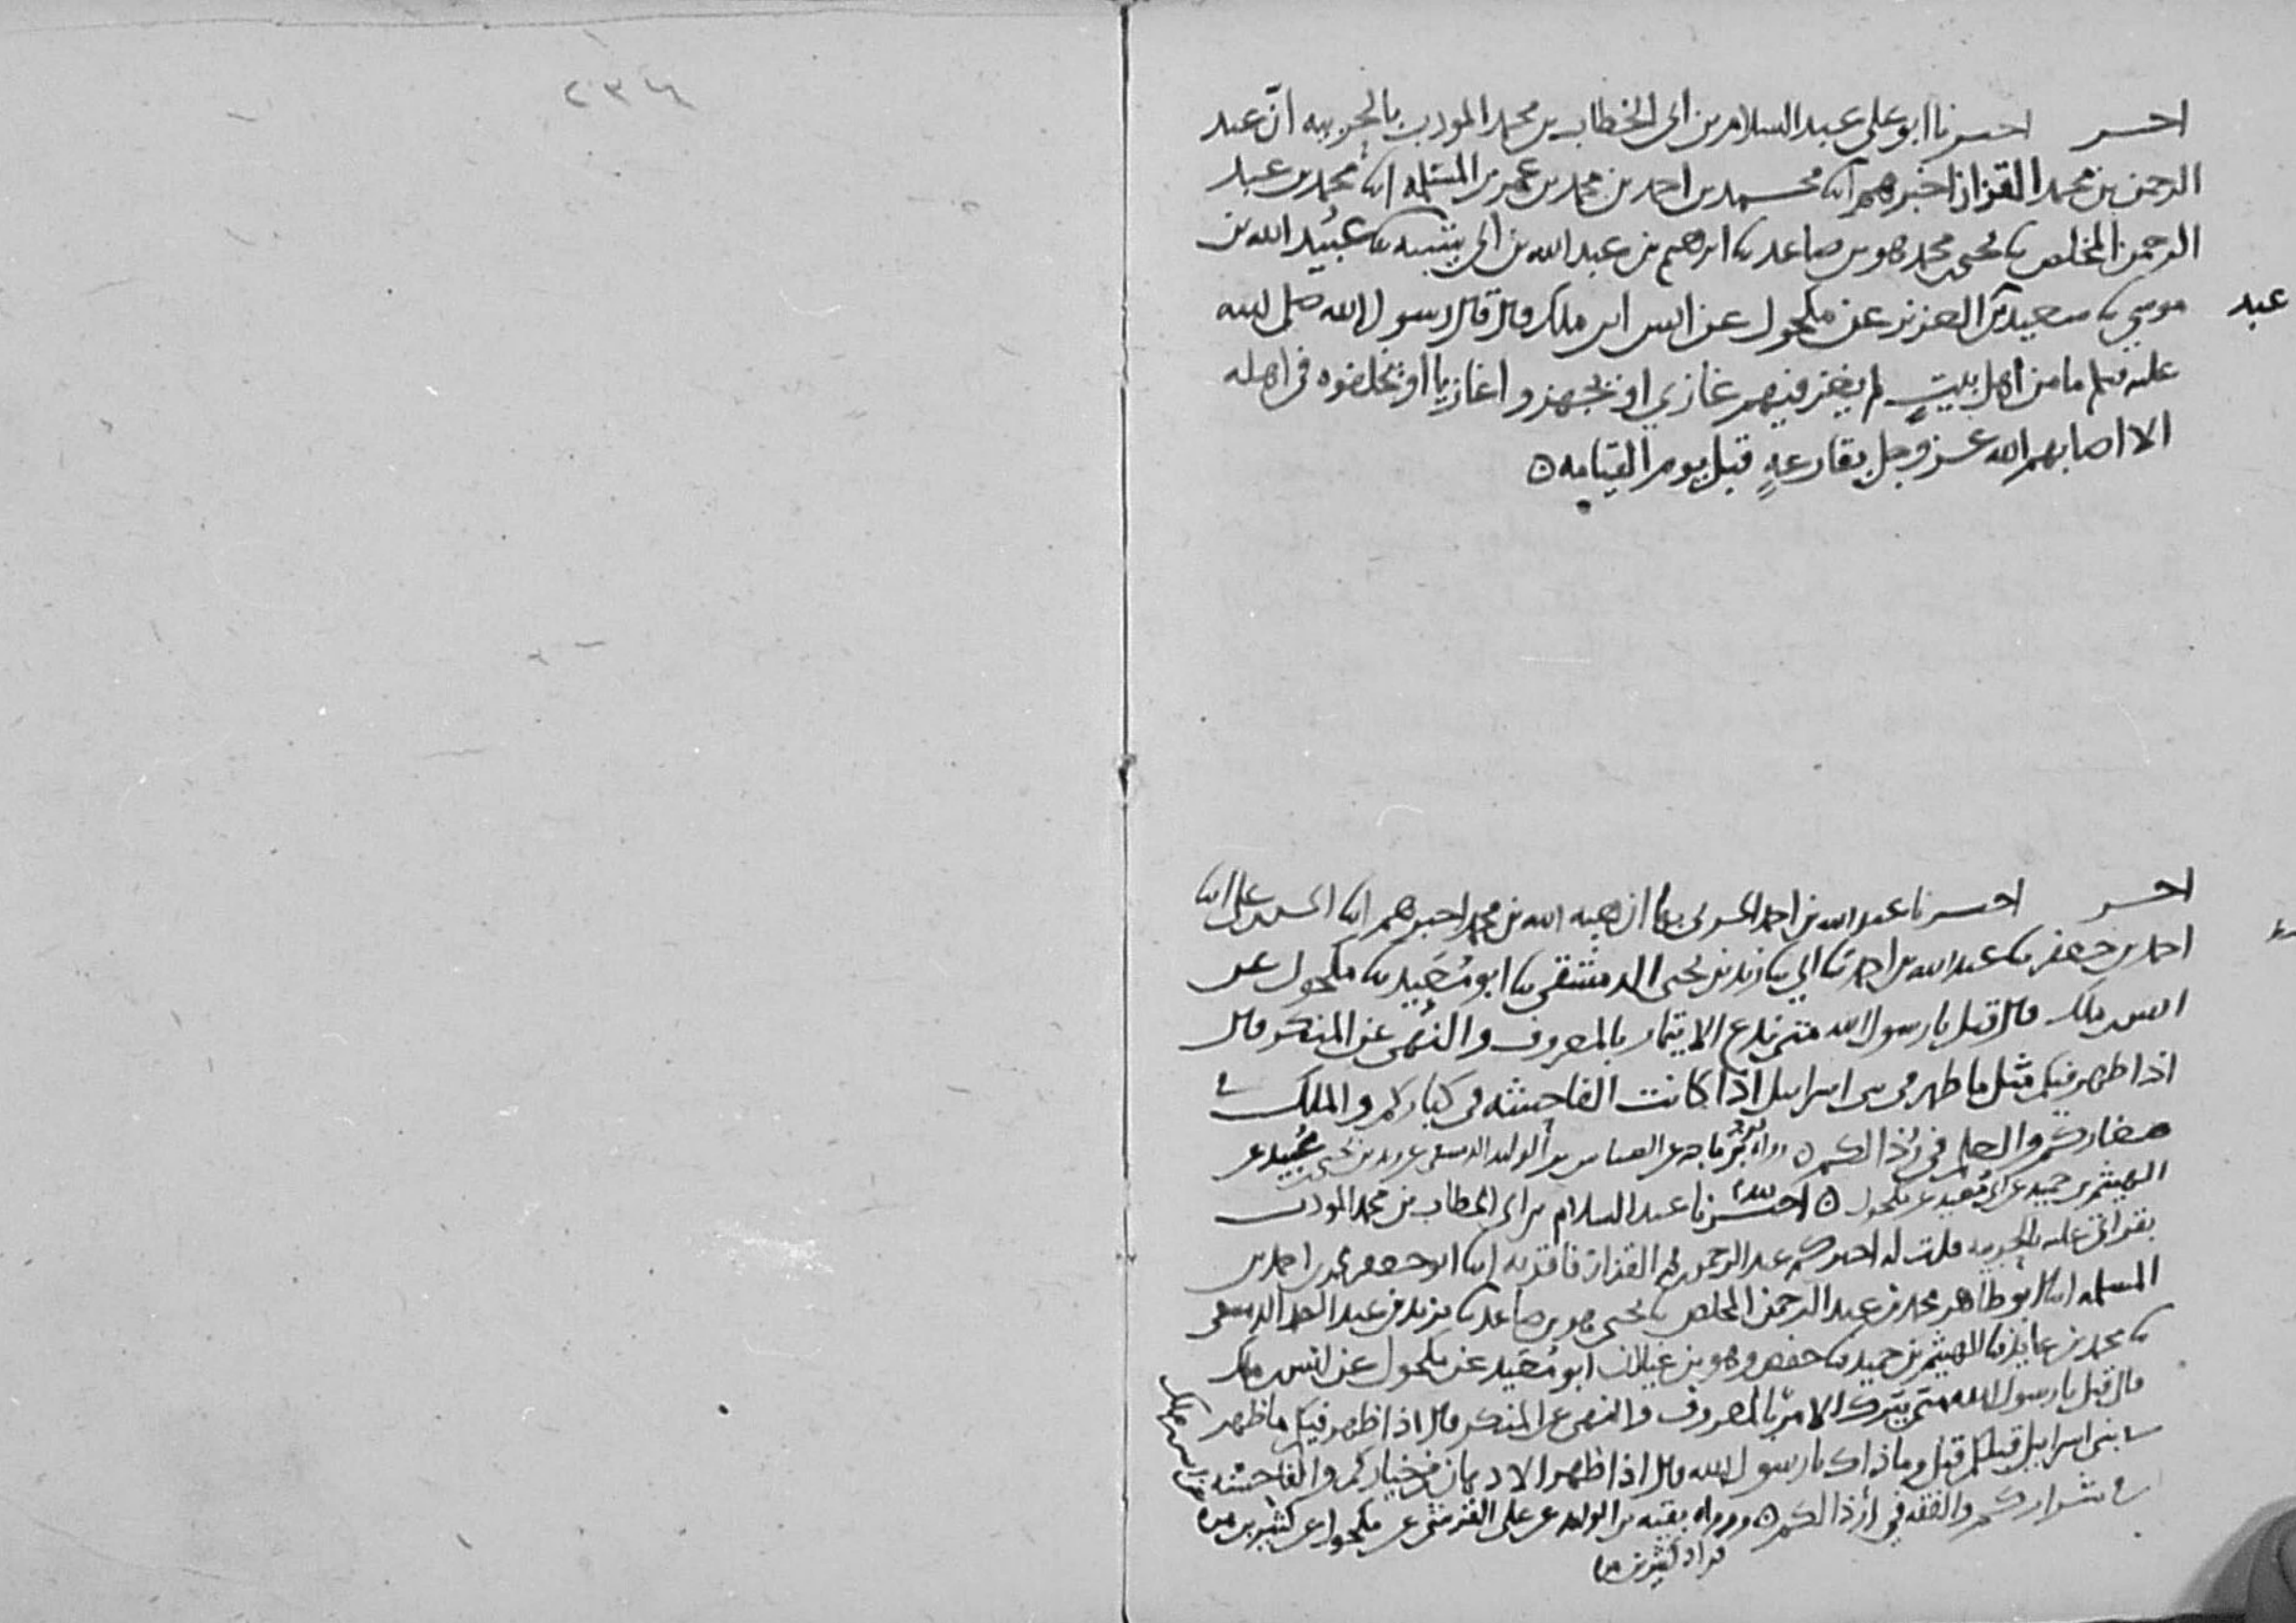 اخبر اخبرنا ابو علي عبد السلام بن ابي الخطاب بن محمد المودب بالحربيه انّ عبد
الرحمن بن محمد القزاز اخبرهم ابنا محمد بن احمد بن محمد بن عمر بن المسلمه ابنا محمد بن عبد
الرحمن المخلص نا يحيى بن محمد هو بن صاعد نا ابرهيم بن عبد الله بن ابي شيبه نا عبيد الله بن
موسى نا سعيد بن العزيز عن مكحول عن انس ابن ملك قال قال رسول الله صلى الله
عبد
عليه وسلم ما من اهل بيتٍ لم يغز فيهم غازي او يجهزوا غازيا او يخلفوه في اهله
الا اصابهم الله عز وجل بقارعهٍ قبل يوم القيامه ٥
اخبر اخبرنا عبد الله بن احمد الحربي بها ان هبه الله بن محمد اخبرهم ابنا الحسن بن علي ابنا
احمد بن جعفر نا عبد الله بن احمد نا ابي نا زيد بن يحيى الدمشقي نا ابو مُعَيد نا مكحول عن
انس بن ملك قال قيل يا رسول الله متى ندع الايتمار بالمعروف والنهى عن المنكر قال
اذا ظهر فيكم مثل ما ظهر في بني اسرايل اذا كانت الفاحشه في كباركم والملك في
صغاركم والعلم في رُذالكم ٥ رواه بن ماجه عن العباس بن الوليد الدمشقي عن زيد بن يحيى بن عُبيد عن
الهيثم بن حميد عن ابي مُعيد عن مكحول ٥ اخبرنا عبد السلام بن ابي الخطاب بن محمد المودب
بقراتي عليه بالحربيه قلت له اخبركم عبد الرحمن بن محمد القزاز فاقر به ابنا ابو جعفر محمد بن احمد بن
المسلمه ابنا ابو طاهر محمد بن عبد الرحمن المخلص نا يحيى هو بن صاعد نا يزيد بن عبد الصمد الدمشقي
نا محمد بن عايذ نا الهيثم بن حميد نا حفص وهو بن غيلان ابو مُعَيد عن مكحول عن انس بن ملك
قال قيل يا رسول الله متى يترك الامر بالمعروف والنهى عن المنكر قال اذا ظهر فيكم ما ظهر
في بني اسرايل قبلكم قيل وما ذاك يا رسول الله قال اذا ظهر الادهان في خياركم والفاحشه
في شراركم والفقه في ارذالكم ٥ ورواه بقيه بن الوليد عن علي القرشي عن مكحول عن كثير بن مره
فزاد كثير بن مره
٢٣٤